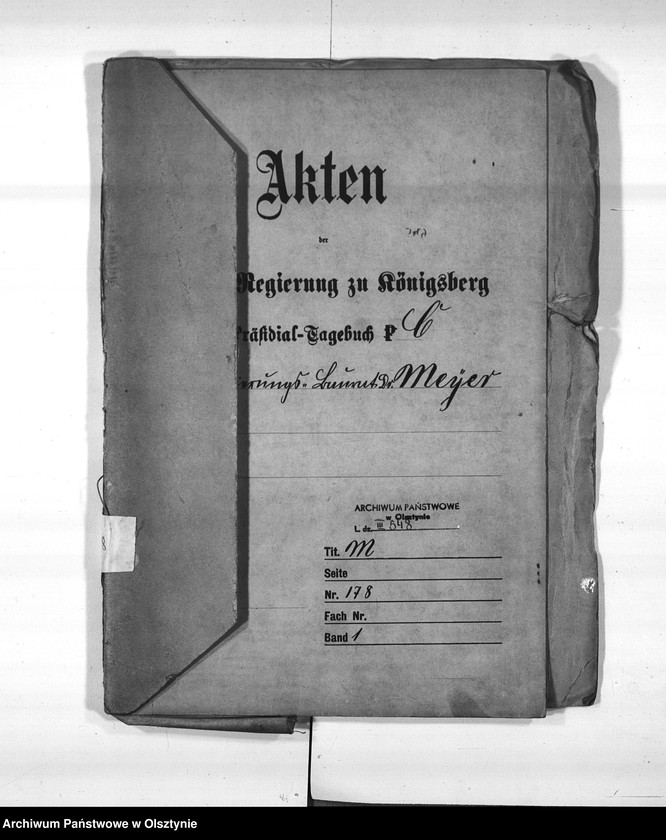 Akten
der
Regierung zu Königsberg
Präsidial-Tagebuch P C
erungs-Baurat Dr. Meyer
ARCHIWUM PAŃSTWOWE
w Olsztynie
L. dz. III 848
Tit. M
Seite
Nr. 178
Fach Nr.
Band 1
8
Archiwum Państwowe w Olsztynie